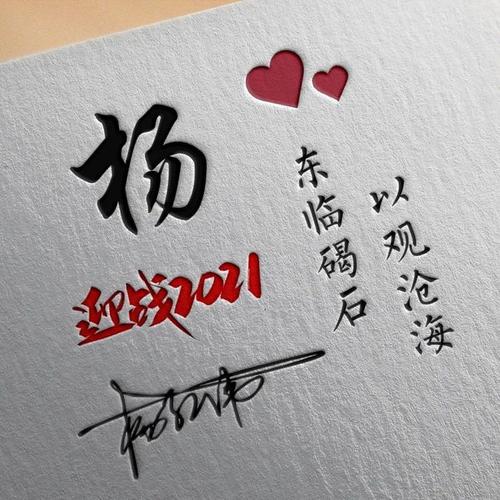 杨
迎战2021
东临碣石
以观沧海